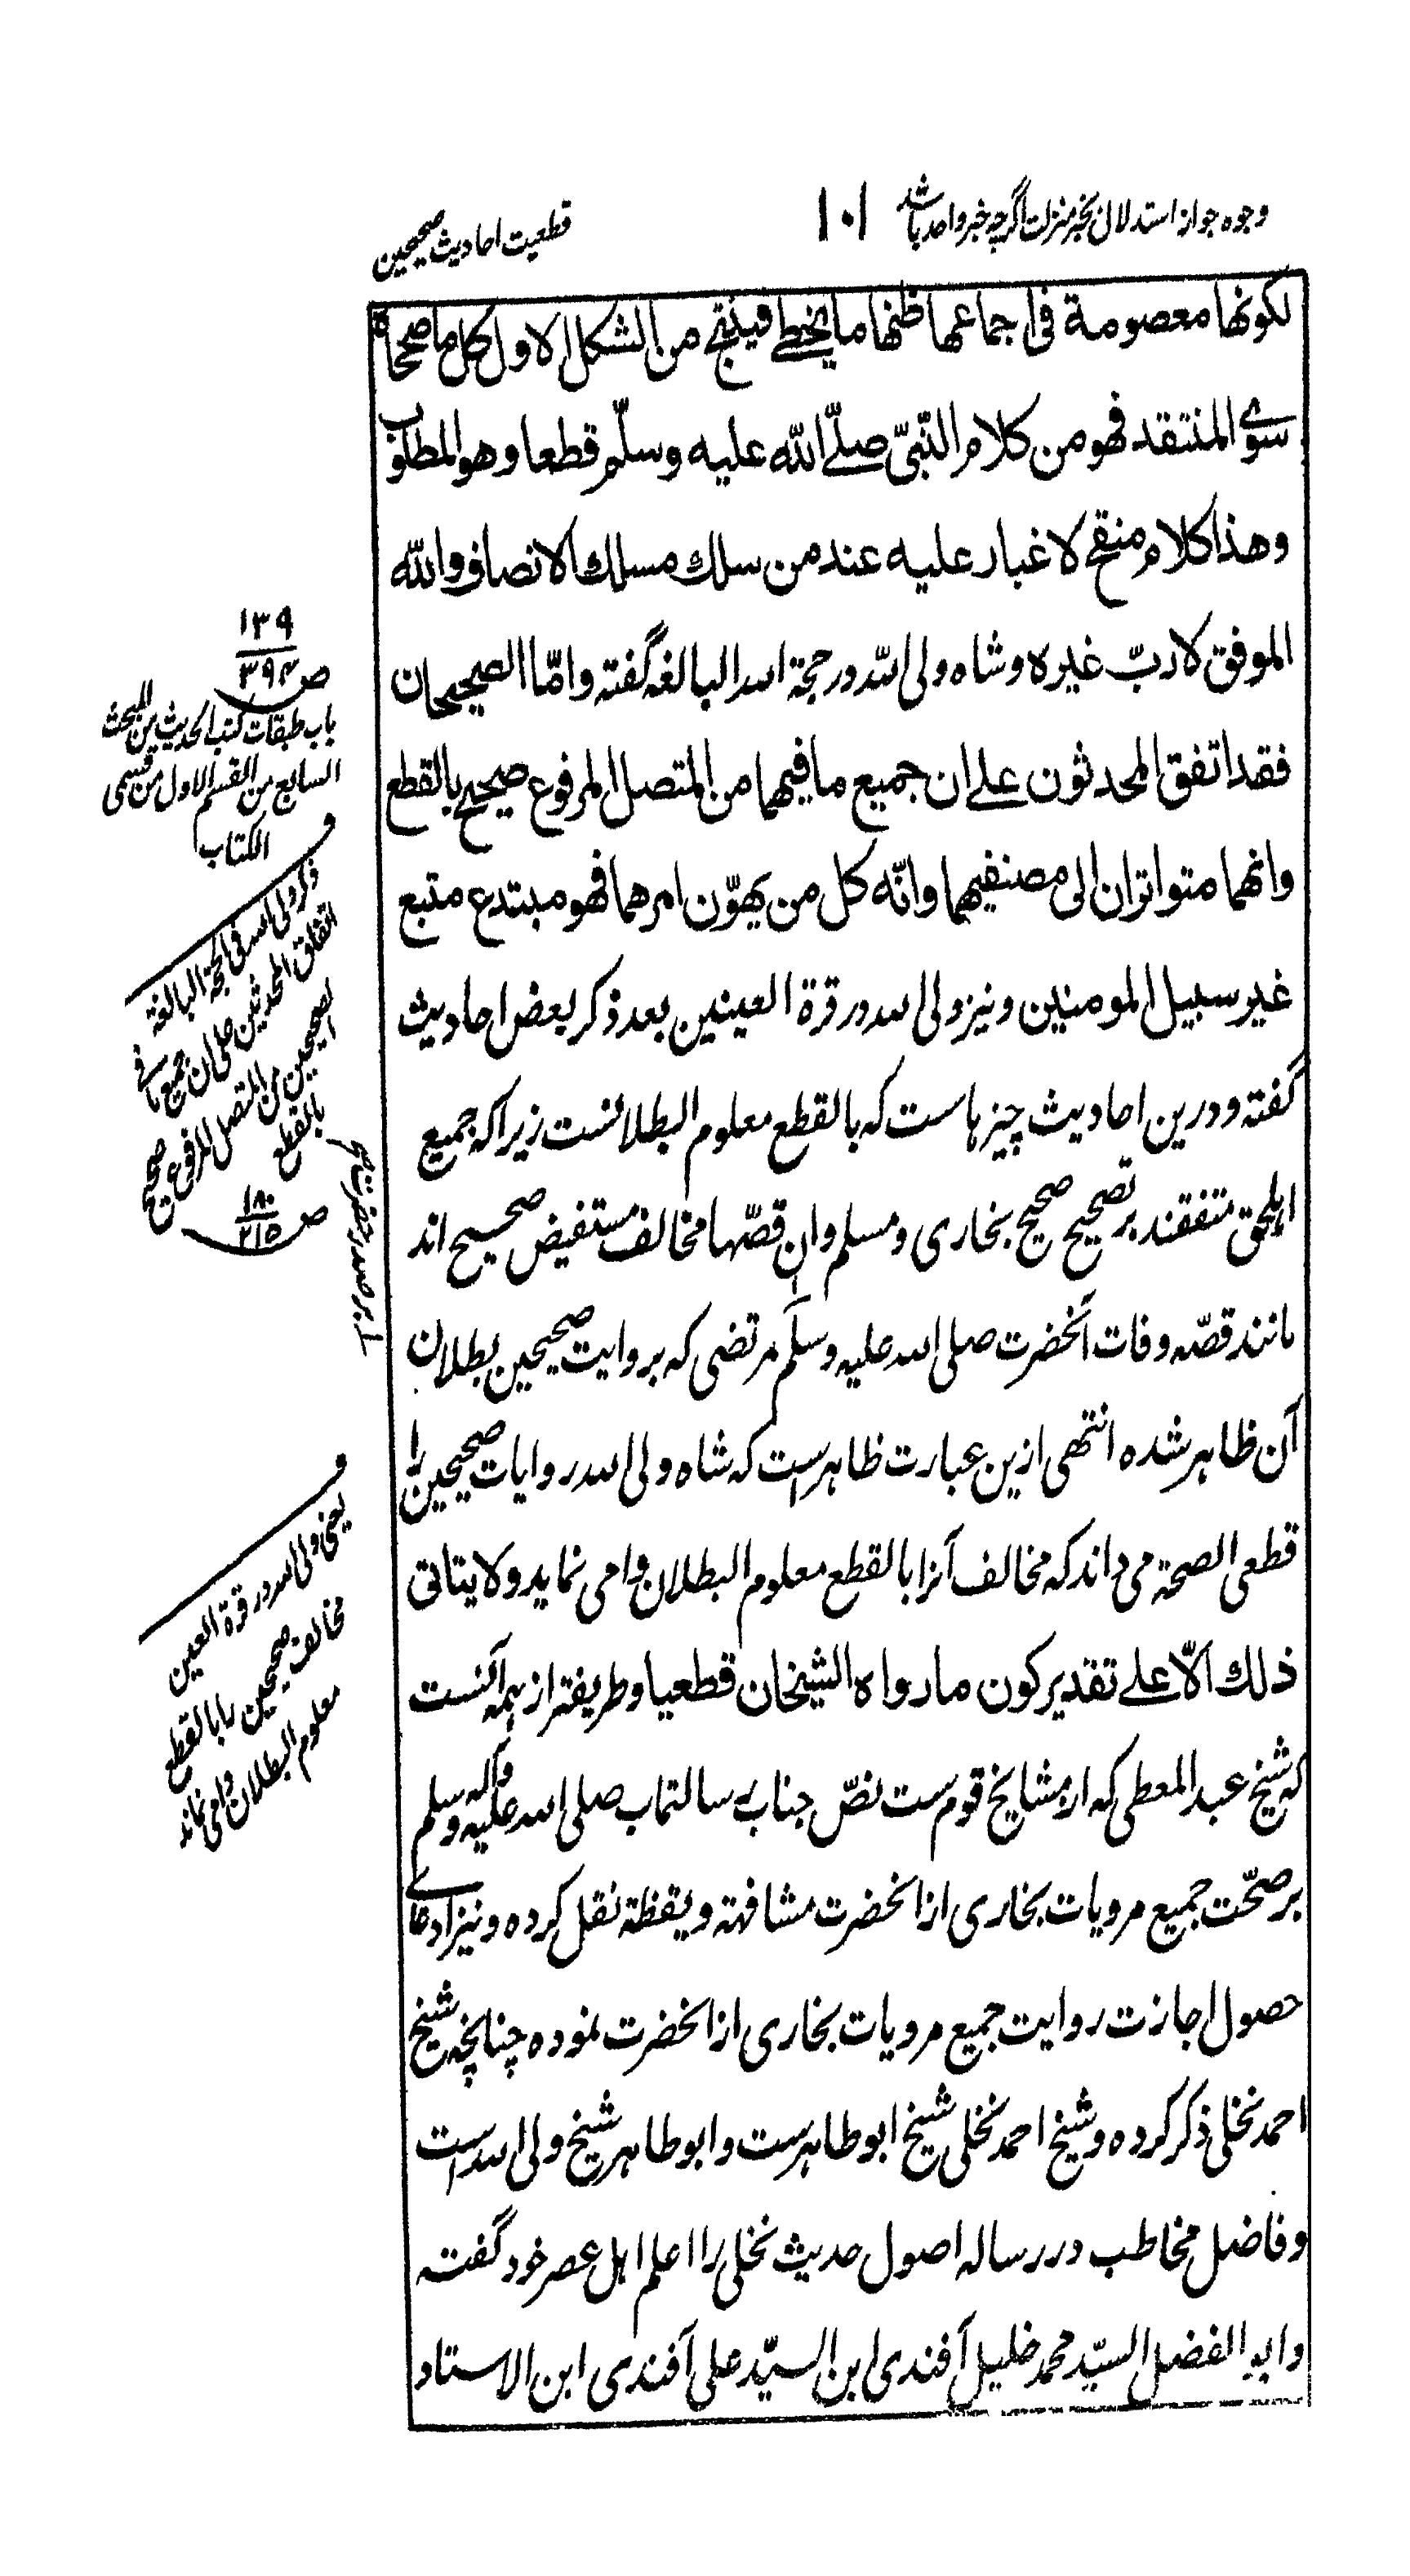 وجوه جواز استدلال بخبر منزلت اگرچه خبر واحد باشد
۱۰۱
قطعیت احادیث صحیحین
لكونها معصومة فی اجماعها ظنها ما یخطی فینتج من الشكل الاول كل ما صححاه
سوی المنتقد فهو من كلام النّبیّ صلّی الله علیه وسلّم قطعا وهو المطلوب
وهذا كلام منقح لا غبار علیه عند من سلك مسلك الانصاف والله
الموفق لا ربّ غیره وشاه ولی الله در حجة الله البالغه گفته وامّا الصحیحان
فقد اتفق المحدثون علی ان جمیع ما فیهما من المتصل المرفوع صحیح بالقطع
وانهما متواتران الی مصنفیهما وانّه كل من یهوّن امرهما فهو مبتدع متبع
غیر سبیل المومنین ونیز ولی الله در قرة العینین بعد ذکر بعض احادیث
گفته ودرین احادیث چیزهاست که بالقطع معلوم البطلانست زیرا که جمیع
اهل حق متفقند بر تصحیح صحیح بخاری ومسلم وان قصّها مخالف مستفیض صحیح اند
مانند قصّه وفات آنحضرت صلی الله علیه وسلم مرتضی که بروایت صحیحین بطلان
آن ظاهر شده انتهی ازین عبارت ظاهرست که شاه ولی الله روایات صحیحین را
قطعی الصحة می داند که مخالف آنرا بالقطع معلوم البطلان وامی نماید ولا یتاتی
ذلك الّا علی تقدیر كون ما رواه الشیخان قطعیا وطریفتر از همه آنست
که شیخ عبد المعطی که از مشایخ قوم ست نصّ جناب رسالتماب صلی الله علیه وآله وسلم
بر صحّت جمیع مرویات بخاری از آنحضرت مشافهة ویقظة نقل کرده ونیز ادعای
حصول اجازت روایت جمیع مرویات بخاری از آنحضرت نموده چنانچه شیخ
احمد نخلی ذکر کرده وشیخ احمد نخلی شیخ ابو طاهرست وابو طاهر شیخ ولی الله است
وفاضل مخاطب در رساله اصول حدیث نخلی را اعلم اهل عصر خود گفته
وابو الفضل السیّد محمد خلیل آفندی ابن السیّد علی آفندی ابن الاستاد
۱۳۹
ص ۳۹۴
باب طبقات کتب الحدیث من المبحث
السابع من القسم الاول من قسمی
الکتاب
ف
ذکر ولی الله فی الحجة البالغة
اتفاق المحدثین علی ان جمیع ما فی
الصحیحین من المتصل المرفوع صحیح
بالقطع
ص ۱۸۰
۲۱۵
ف
یعنی ولی الله در قرة العین
مخالف صحیحین را بالقطع
معلوم البطلان وامی نماند